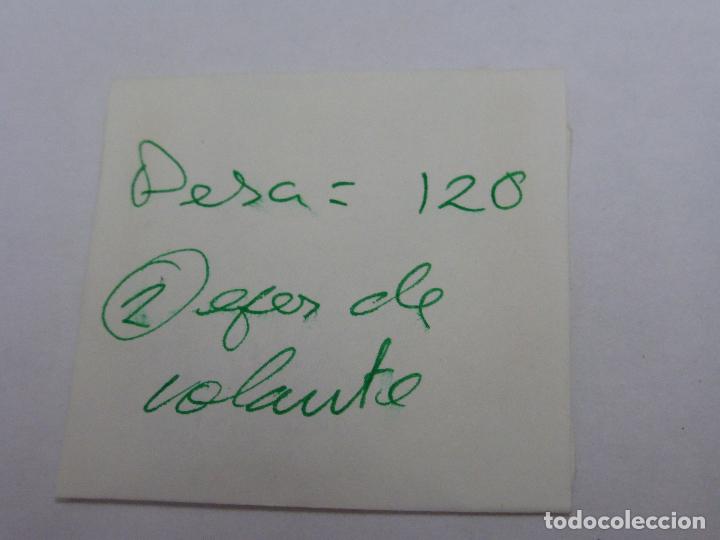 Desa = 120
② ejes de
volante
todocoleccion